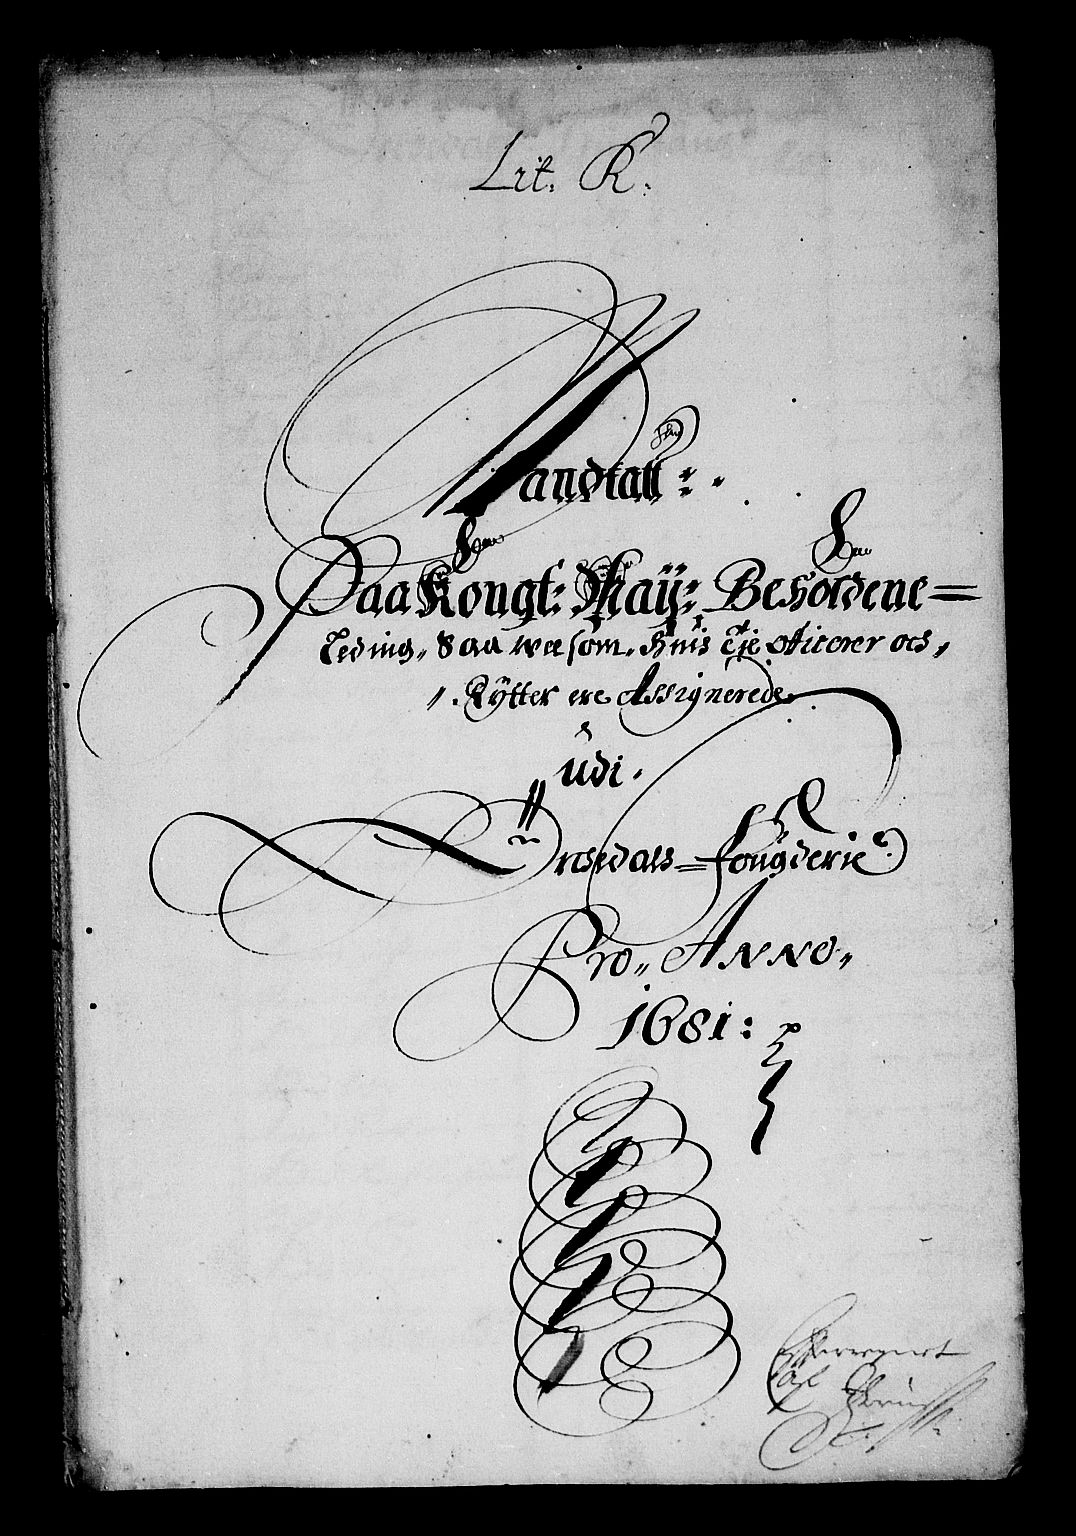 Lit. K.
Mandtall:.
Paa Kongl: Maÿ: Beholdene=
Leding, Saa well som, Huis till officerer och,
Rÿtter ere Assignerede
udi.
Ørsedals= Fougderie
Pro,, Anno,
1681: